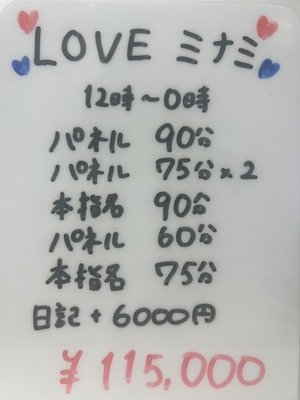 LOVE ミナミ
12時〜0時
パネル 90分
パネル 75分×2
本指名 90分
パネル 60分
本指名 75分
日記 + 6000円
¥115,000